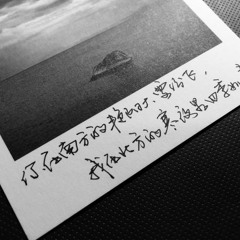 你在南方的艳阳里.雪纷飞,
我在北方的寒夜里四季如